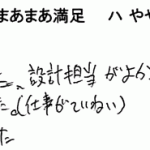 まあまあ満足　ハ やや
設計担当 がよか
た。(仕事がていねい)
た